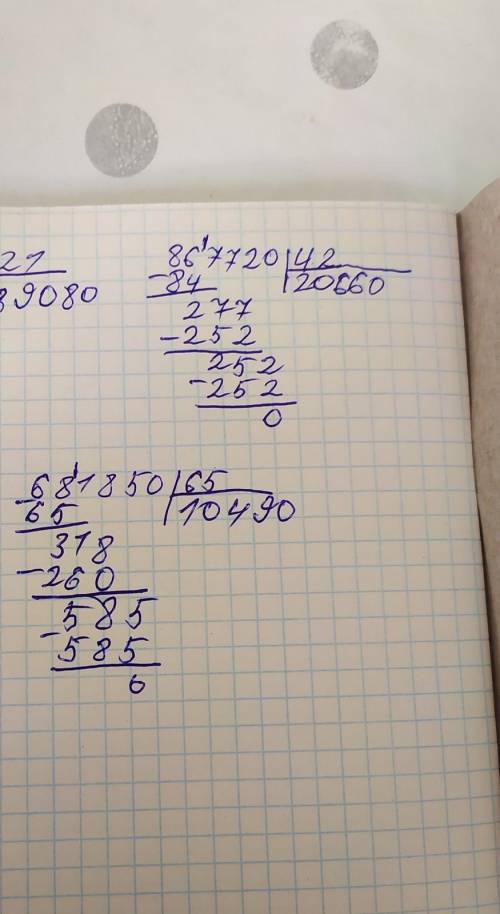 21
89080
867720 42
-84 20660
277
-252
252
-252
0
681850 65
-65 10490
318
-260
585
-585
0